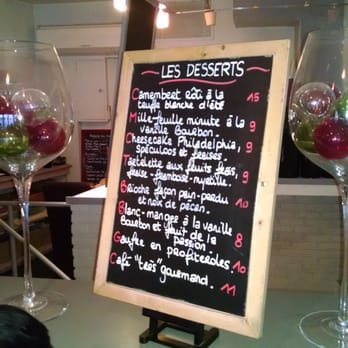 LES DESSERTS
Camembert rôti à la
truffe blanche d'été 15
Mille-feuille minute à la
vanille Bourbon. 9
Cheesecake Philadelphia,
spéculoos et fraises. 9
Tartelette aux fruits frais,
fraise-framboise-myrtille. 9
Brioche façon pain-perdu
et noix de pécan. 10
Blanc-manger à la vanille
Bourbon et fruit de la
passion 8
Gaufre en profiteroles. 10
Café "très" gourmand. 11